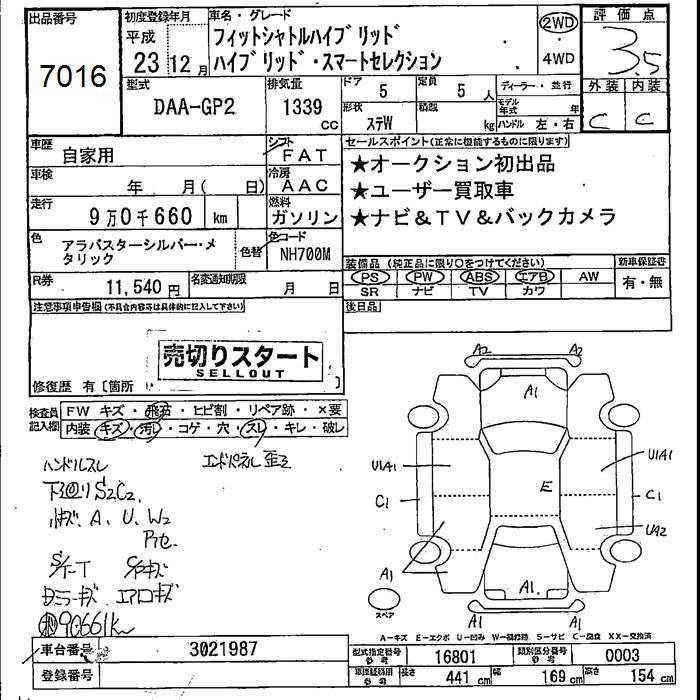 出品番号
7016
初度登録年月
平成
23 12月
車名・グレード
フィットシャトルハイブリッド
ハイブリッド・スマートセレクション
2WD
4WD
評価点
3.5
外装 内装
C C
型式
DAA-GP2
排気量
1339
cc
ドア
5
定員
5 人
形状
ステW
積載
kg
ディーラー・並行
モデル年式 年
ハンドル 左・右
車歴
自家用
シフト
FAT
車検
年 月( 日)
冷房
AAC
走行
9万0千660 km
燃料
ガソリン
色
アラバスターシルバー・メタリック
色替
色コード
NH700M
R券
11,540 円
名変通知期限
月 日
セールスポイント(正常に機能するものに限ります)
★オークション初出品
★ユーザー買取車
★ナビ&TV&バックカメラ
装備品(純正品に限り○をつけてください)
PS PW ABS エアB AW
SR ナビ TV カワ
新車保証書
有・無
後日品
注意事項申告欄(不具合内容等は具体的に記入して下さい)
売切りスタート
SELLOUT
修復歴 有〔箇所 〕
検査員記入欄
FW キズ・飛石・ヒビ割・リペア跡・×要
内装 キズ・汚レ・コゲ・穴・スレ・キレ・破レ
ハンドルスレ
エンドパネル歪
下廻りS2C2
小キズ、A、U、W2
S/F-T
エアロキズ
90661km
A2 A2
A1
U1A1 U1A1
C1 C1
E
UA2
A1
A1
A1 A1
スペア
A-キズ E-エクボ U-凹み W-補修跡 S-サビ C-腐食 XX-交換済
車台番号
3021987
登録番号
型式指定番号
参考
16801
類別区分番号
参考
0003
車庫証明用
参考
長さ 441 cm
幅 169 cm
高さ 154 cm